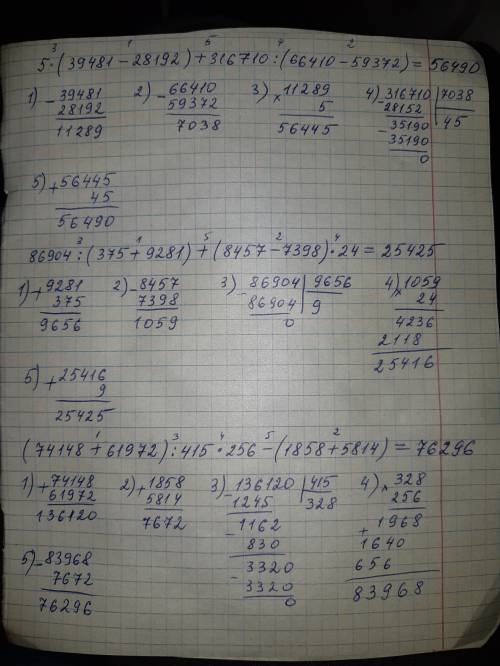 3 1 5 4 2
5·(39481-28192)+316710:(66410-59372)=56490
1) -39481 2) -66410 3) ×11289 4) -316710 | 7038
28192 59372 5 28152 | 45
11289 7038 56445 -35190
35190
0
5) +56445
45
56490
3 1 5 2 4
86904:(375+9281)+(8457-7398)·24=25425
1) +9281 2) -8457 3) -86904 | 9656 4) ×1059
375 7398 86904 | 9 24
9656 1059 0 4236
2118
25416
5) +25416
9
25425
1 3 4 5 2
(74148+61972):415·256-(1858+5814)=76296
1) +74148 2) +1858 3) -136120 | 415 4) ×328
61972 5814 1245 | 328 256
136120 7672 -1162 +1968
830 1640
5) -83968 -3320 656
7672 3320 83968
76296 0